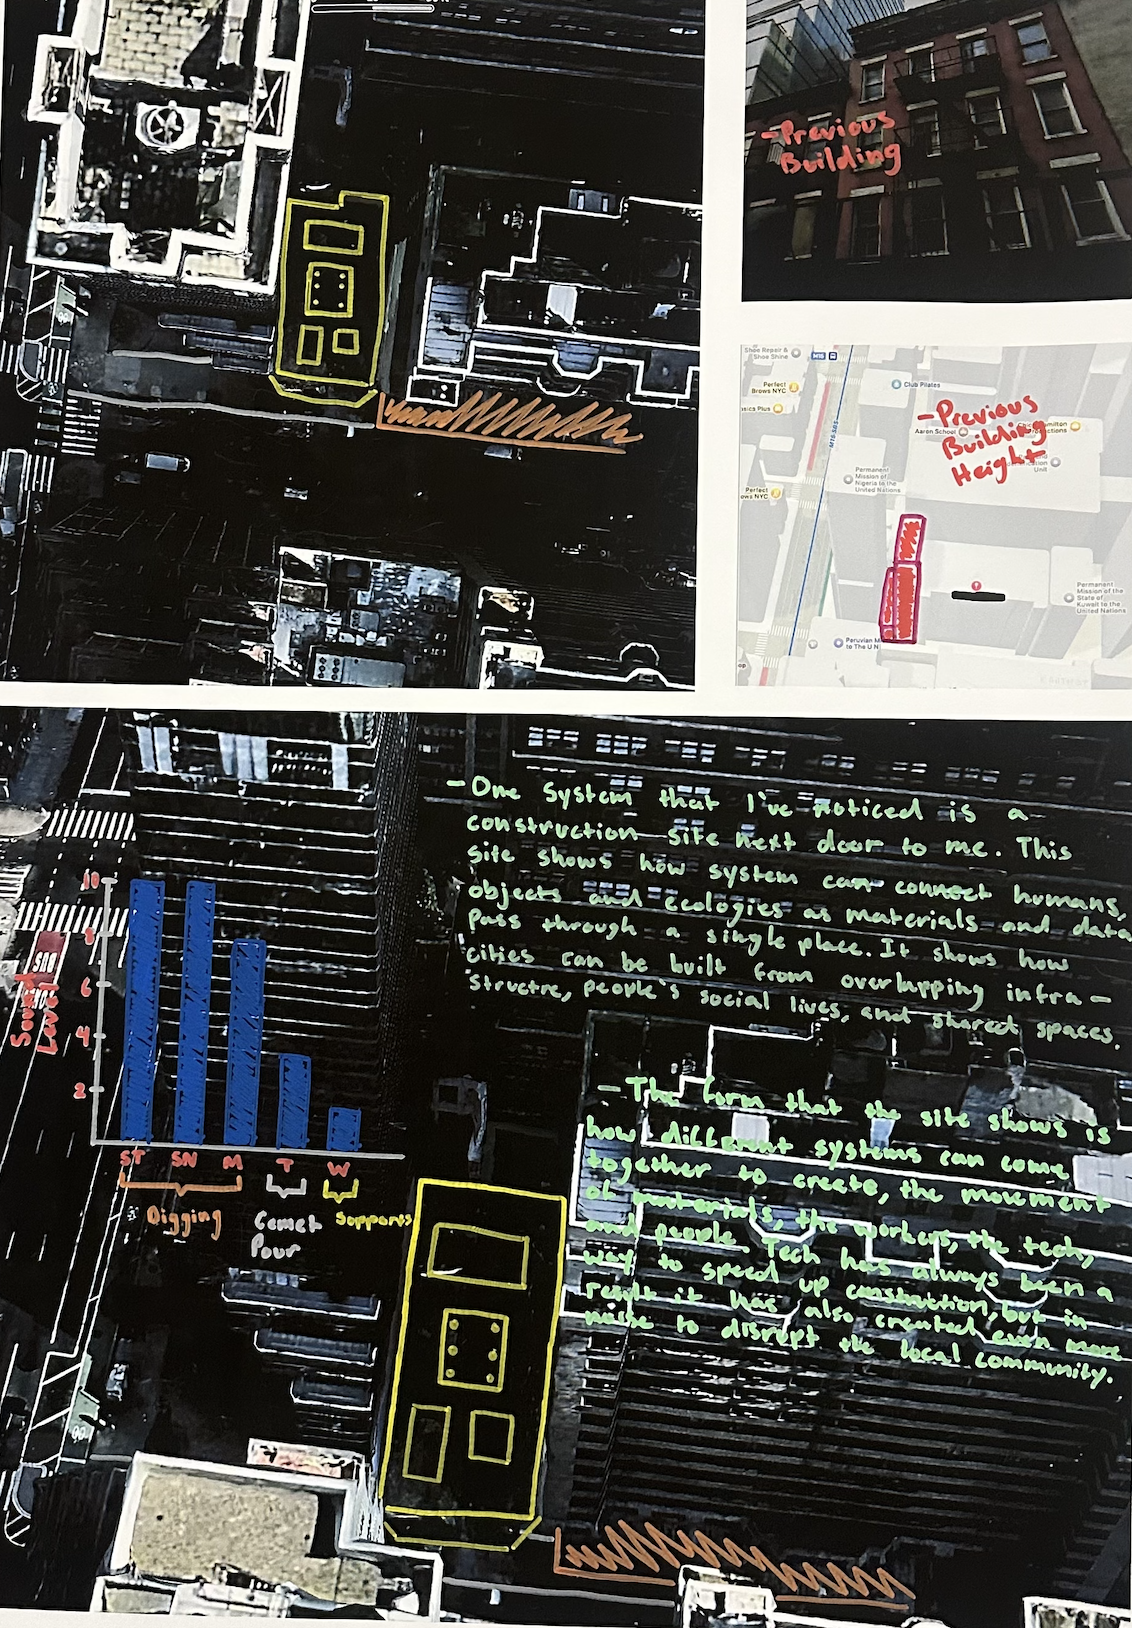 - Previous
Building
Shoe Repair &
Shoe Shine
M15
Perfect
Brows NYC
Club Pilates
- Previous
Building
Height
Aaron School
M15-SBS
Permanent
Mission of
Nigeria to the
United Nations
Perfect
Permanent
Mission of the
State of
Kuwait to the
United Nations
Peruvian
to The U N
- One system that I've noticed is a
construction site next door to me. This
site shows how system can connect humans,
objects and ecologies as materials and data
pass through a single place. It shows how
cities can be built from overlapping infra-
structre, people's social lives, and shared spaces.
- The form that the site shows is
how different systems can come
together to create, the movement
of materials, the workers, the tech,
and people. Tech has always been a
way to speed up constuction, but in
result it has also created even more
noise to disrupt the local community.
Sound
Level
10
8
6
4
2
ST SN M T W
Digging
Cemet
Pour
Supports
BUS